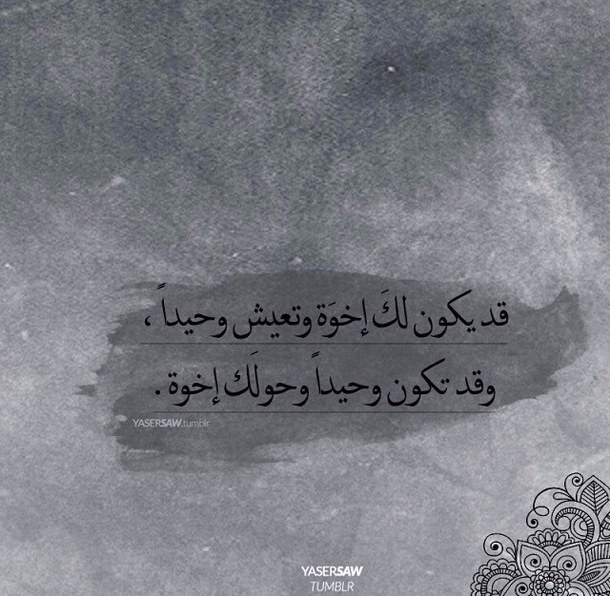 قد يكون لكَ إخوَة وتعيش وحيداً ،
وقد تكون وحيداً وحولَك إخوة .
YASERSAW.tumblr
YASERSAW
TUMBLR